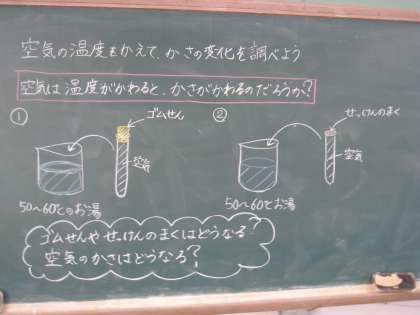 空気の温度をかえて、かさの変化を調べよう
空気は温度がかわると、かさがかわるのだろうか?
①
ゴムせん
空気
50~60℃のお湯
②
せっけんのまく
空気
50~60℃お湯
ゴムせんやせっけんのまくはどうなる?
空気のかさはどうなる?